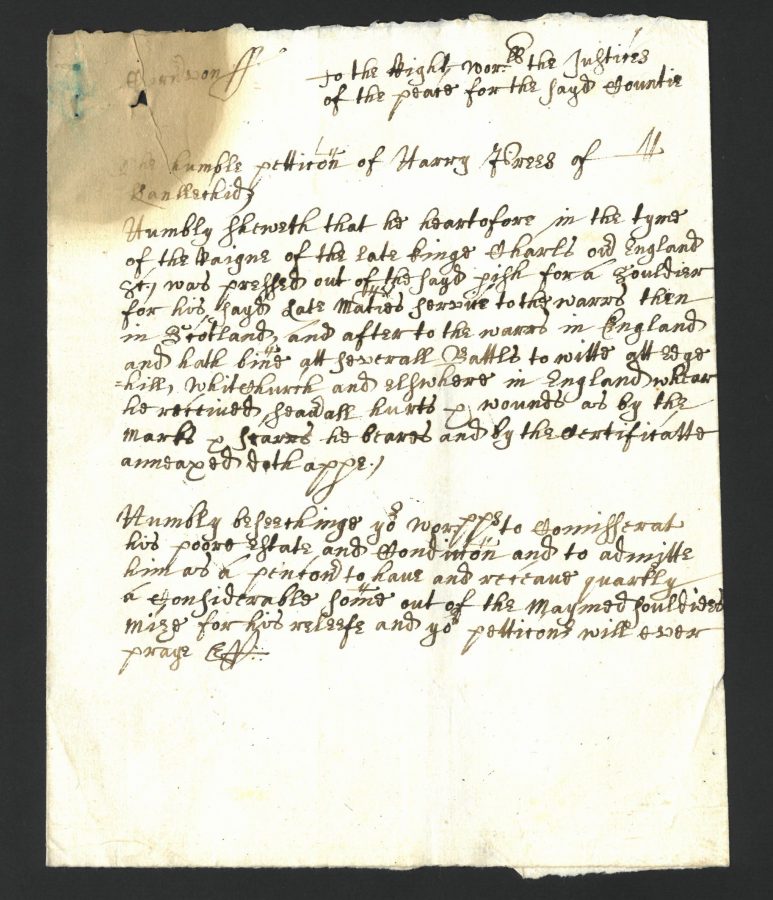 Carnrvon ss
To the Right worpll the Justices
of the peace for the sayd Countie
The humble petticon of Harry Prees of
Lanllechid
Humbly sheweth that he heartofore in the tyme
of the Raigne of the late kinge Charls on England
&c, was pressed out of the sayd pish for a Souldier
for his sayd Late Maties service to the warrs then
in Scotland, and after to the warrs in England
and hath bine att severall Battls to witte att Edge
=hill, Whitchurch and elshwhere in England whear
he received, seavall hurts & wounds as by the
Marks & scarrs he beares and by the Certificatte
anneaxed doth appe.
Humbly beseechinge yor worpps to Comisserat
his poore estate and Condicon and to admitte
him as a pencon to have and receave quartly
a Considerable some out of the Maymed souldiers
Mize for his releefe and yor petticonr will ever
praye &c.